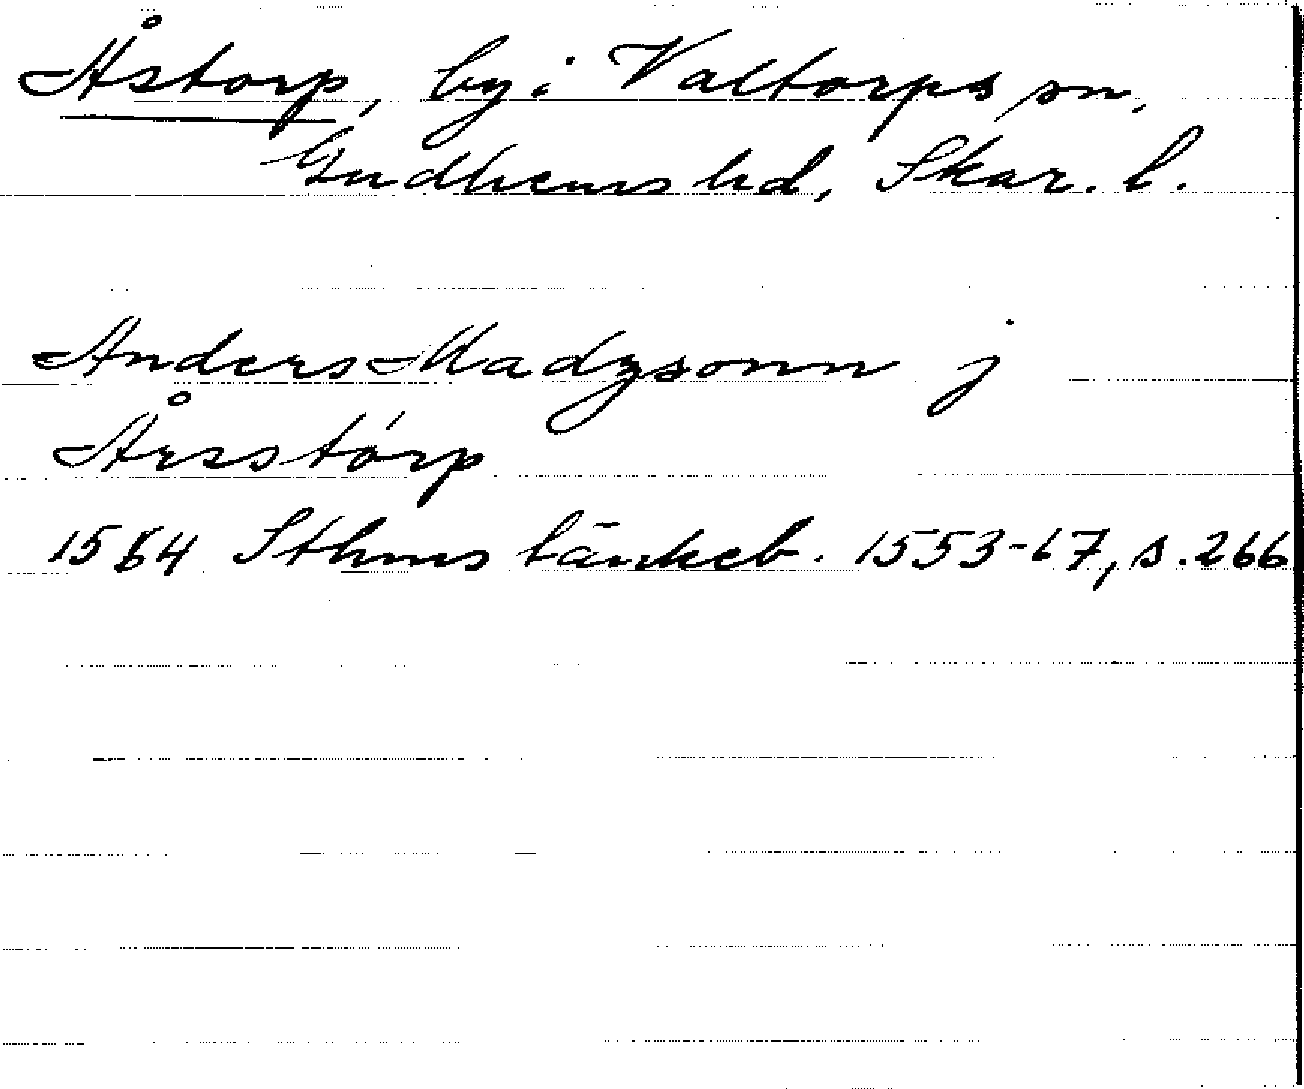 Åstorp, by i Valtorps sn,
Gudhems hd, Skar. l.
Anders Madzsonn j
Årsstorp
1564 Sthms tänkeb. 1553-67, s. 266